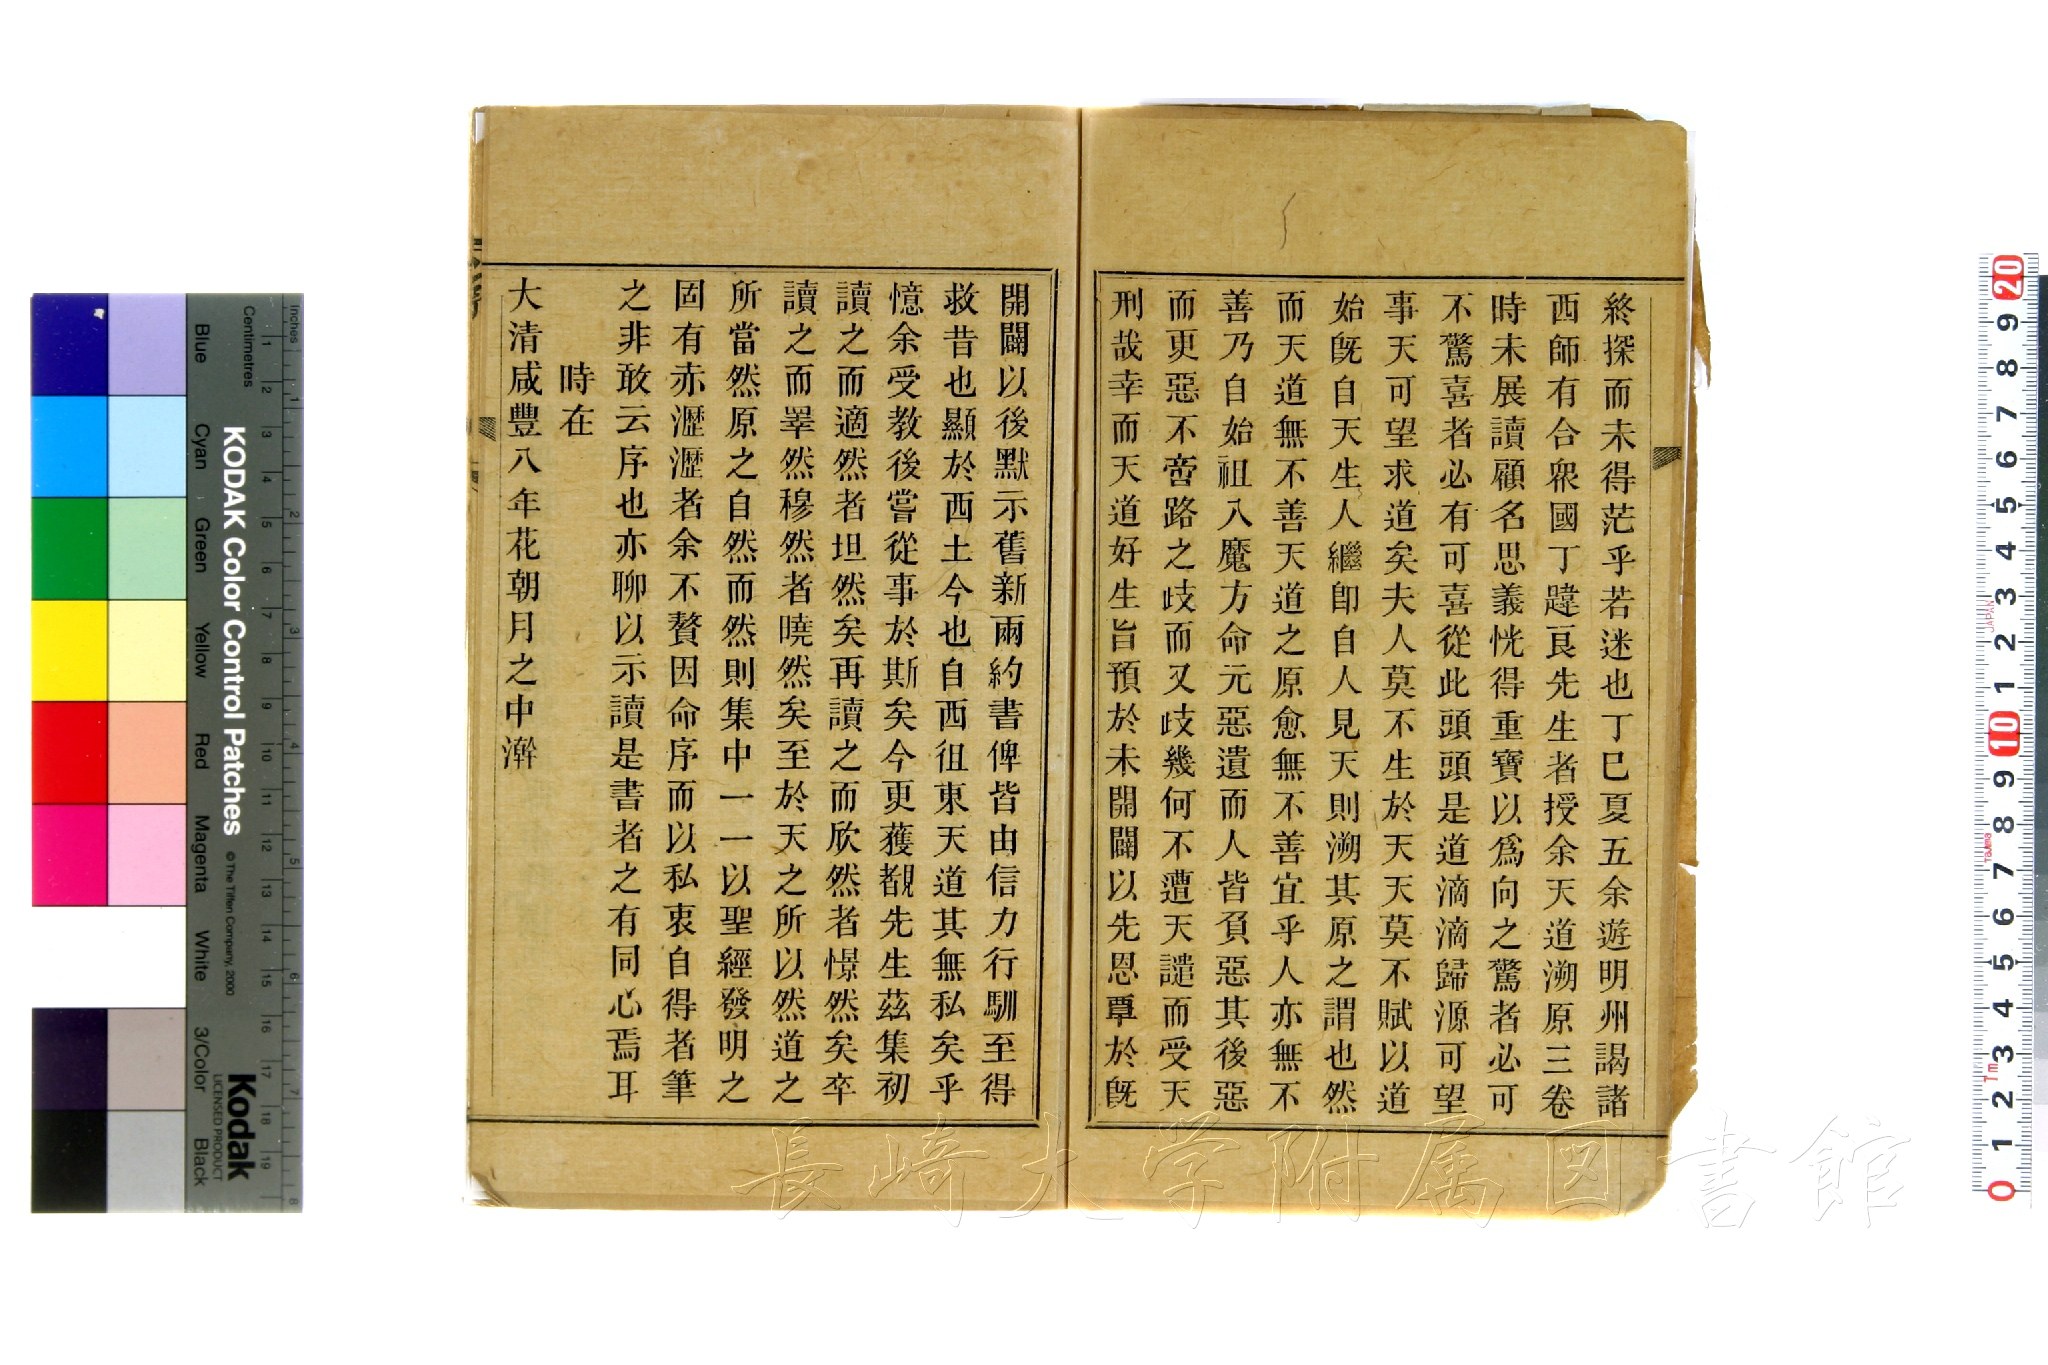 終探而未得茫乎若迷也丁巳夏五余遊明州謁諸
西師有合衆國丁韙良先生者授余天道溯原三卷
時未展讀顧名思義恍得重寶以爲向之驚者必可
不驚喜者必有可喜從此頭頭是道滴滴歸源可望
事天可望求道矣夫人莫不生於天天莫不賦以道
始旣自天生人繼卽自人見天則溯其原之謂也然
而天道無不善天道之原愈無不善宜乎人亦無不
善乃自始祖入魔方命元惡遺而人皆負惡其後惡
而更惡不啻路之歧而又歧幾何不遭天譴而受天
刑哉幸而天道好生旨預於未開闢以先恩覃於旣
開闢以後默示舊新兩約書俾皆由信力行馴至得
救昔也顯於西土今也自西徂東天道其無私矣乎
憶余受教後嘗從事於斯矣今更獲覩先生茲集初
讀之而適然者坦然矣再讀之而欣然者憬然矣卒
讀之而睪然穆然者曉然矣至於天之所以然道之
所當然原之自然而然則集中一一以聖經發明之
固有赤瀝瀝者余不贅因命序而以私衷自得者筆
之非敢云序也亦聊以示讀是書者之有同心焉耳
時在
大清咸豐八年花朝月之中澣
KODAK Color Control Patches
© The Tiffen Company, 2000
Kodak
LICENSED PRODUCT
Inches
Centimetres
Blue
Cyan
Green
Yellow
Red
Magenta
White
3/Color
Black
長崎大学附属図書館
JAPAN